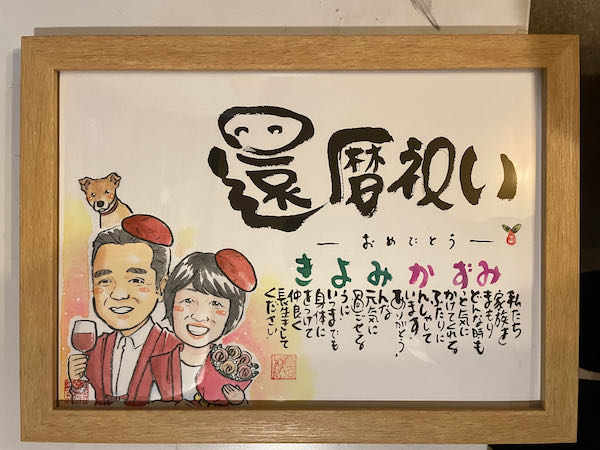 還暦祝い
― おめでとう ―
きよみかずみ
私たち
家族を
まもり
どんな時も
心元気に
かけてくれる
ふたりに
かんしゃして
います！
ありがとう
みんな
元気に
過ごせる
ように
いつまでも
身体に
きをつけて
仲良く
長生きして
ください